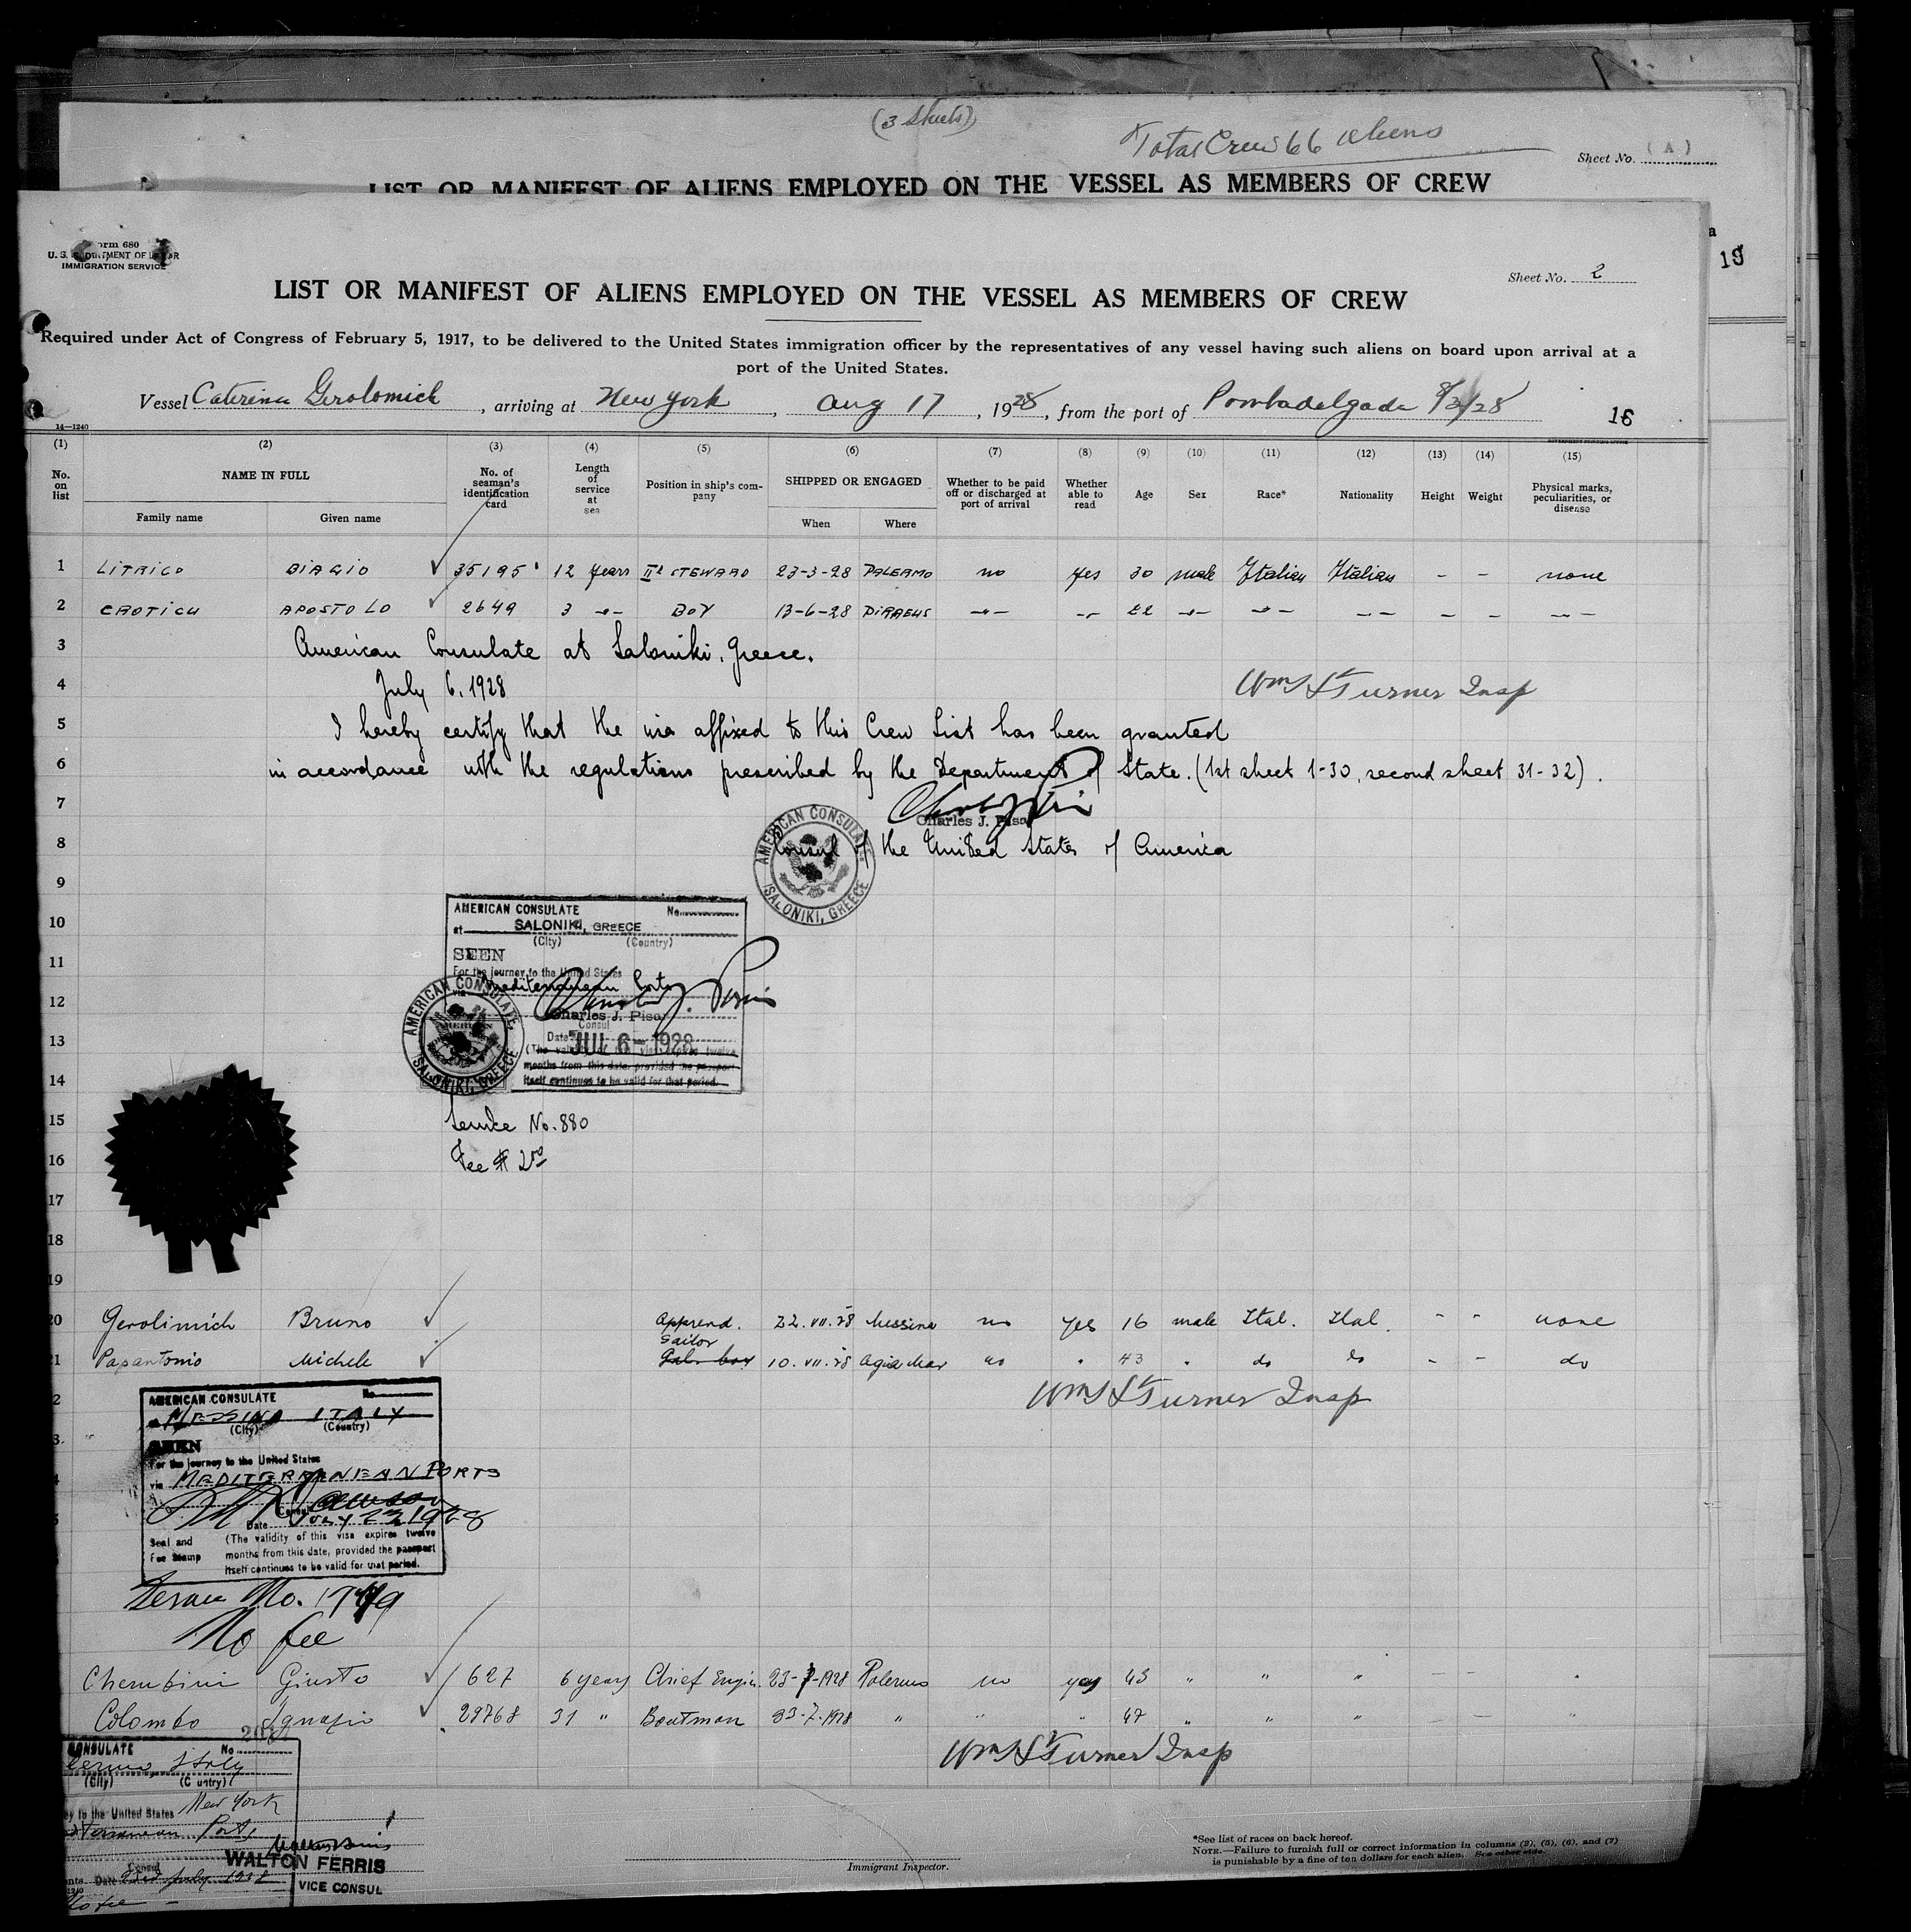 (3 Sheets)
Total Crew 66 aliens
Sheet No. (A)
LIST OR MANIFEST OF ALIENS EMPLOYED ON THE VESSEL AS MEMBERS OF CREW
19
Form 680
U. S. DEPARTMENT OF LABOR
IMMIGRATION SERVICE
Sheet No. 2
LIST OR MANIFEST OF ALIENS EMPLOYED ON THE VESSEL AS MEMBERS OF CREW
Required under Act of Congress of February 5, 1917, to be delivered to the United States immigration officer by the representatives of any vessel having such aliens on board upon arrival at a
port of the United States.
Vessel Caterina Gerolomich, arriving at New York, Aug 17, 1928, from the port of Pontadelgada 8/2/28
16
14—1240
GOVERNMENT PRINTING OFFICE
(1) (2) (3) (4) (5) (6) (7) (8) (9) (10) (11) (12) (13) (14) (15)
No. on list NAME IN FULL No. of seaman's identification card Length of service at sea Position in ship's company SHIPPED OR ENGAGED Whether to be paid off or discharged at port of arrival Whether able to read Age Sex Race* Nationality Height Weight Physical marks, peculiarities, or disease
Family name Given name When Where
1 LITRICO BIAGIO 35195 12 years II STEWARD 23-3-28 PALERMO no yes 30 male Italian Italian – – none
2 CAOTICU APOSTOLO 2649 3 -"- BOY 13-6-28 PIRAEUS -"- -"- 22 -"- -"- -"- – – -"-
3 American Consulate at Saloniki, Greece.
4 July 6, 1928
Wm S Turner Insp
5 I hereby certify that the visa affixed to this Crew List has been granted
6 in accordance with the regulations prescribed by the Department of State. (1st sheet 1-30, second sheet 31-32).
7
Charles J. Pisar
8 Consul of the United States of America
AMERICAN CONSULATE
SALONIKI, GREECE
9
10
11
12
13
14
AMERICAN CONSULATE No.
at SALONIKI, GREECE
(City) (Country)
SEEN
For the journey to the United States
via Mediterranean Ports
Charles J. Pisar
Consul
Date JUL 6 - 1928
(The validity of this visa expires twelve
months from this date, provided the passport
itself continues to be valid for that period.
AMERICAN CONSULATE,
SALONIKI, GREECE
15 Service No. 880
16 Fee $ 2.50
17
18
19
20 Gerolimich Bruno Apprend. 22.VII.28 Messina no yes 16 male Ital. Ital. - - none
Sailor
21 Papantonio Michele 10.VII.28 Agia Mar no " 43 " do do - - do
Wm S Turner Insp
AMERICAN CONSULATE No.
at MESSINA ITALY
(City) (Country)
SEEN
For the journey to the United States
via MEDITERRANEAN PORTS
Consul
Date JULY 23 1928
Seal and Fee Stamp
(The validity of this visa expires twelve
months from this date, provided the passport
itself continues to be valid for that period.
Service No. 1749
No fee
Cherubini Giusto 627 6 years Chief Engin. 23-7-1928 Palermo no yes 43 " " " – – "
Colombo Ignazio 29768 31 " Boatman 23-7-1928 " " " 47 " " " – – "
Wm S Turner Insp
CONSULATE No
Palermo Italy
(City) (Country)
to the United States New York
Mediterranean Ports
WALTON FERRIS
VICE CONSUL
Consul
Date 23d July 1928
No fee –
Immigrant Inspector.
*See list of races on back hereof.
NOTE.—Failure to furnish full or correct information in columns (2), (5), (6), and (7)
is punishable by a fine of ten dollars for each alien. See other side.